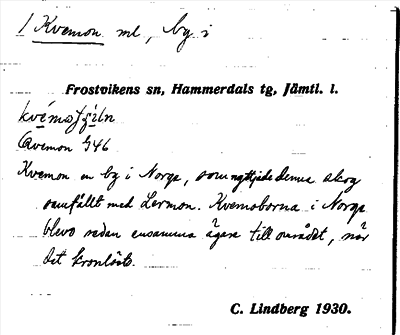 / Kvemon ml, by i
Frostvikens sn, Hammerdals tg, Jämtl. l.
Qvemon G46
Kvemon en by i Norge, som nyttjade denna skog
samfällt med Lermon. Kvemoborna i Norge
blevo sedan ensamma ägare till området, när
det kronlöst.
C. Lindberg 1930.